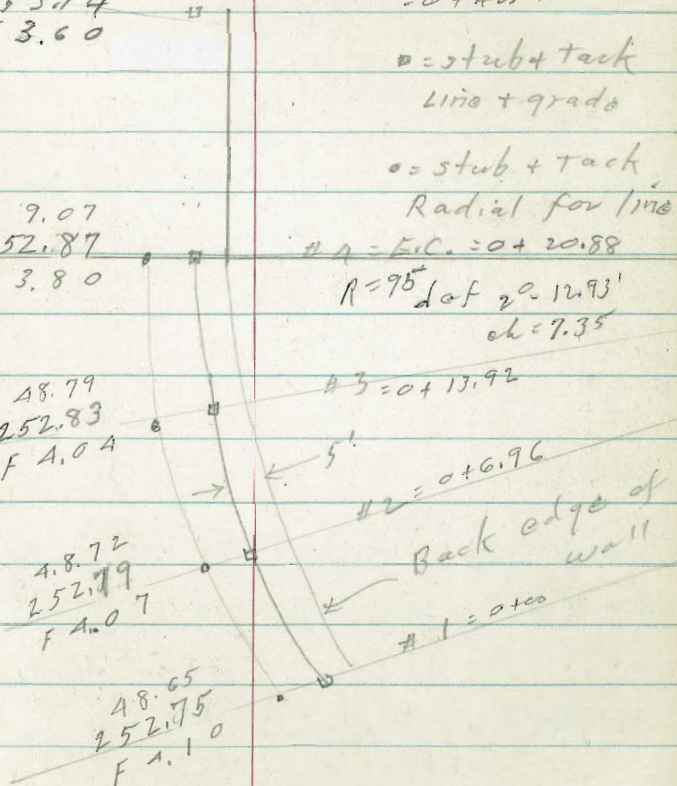 3.60
▫ = stub + Tack
Line + grade
• = stub + Tack
Radial for line
9.07
52.87
3.80
#4 = E.C. = 0 + 20.88
R = 95' def 2° - 12.93'
ch = 7.35
48.79
252.83
F 4.04
#3 = 0 + 13.92
5'
#2 = 0 + 6.96
Back edge of
wall
48.72
252.79
F 4.07
#1 = 0+00
48.65
252.75
F 4.10